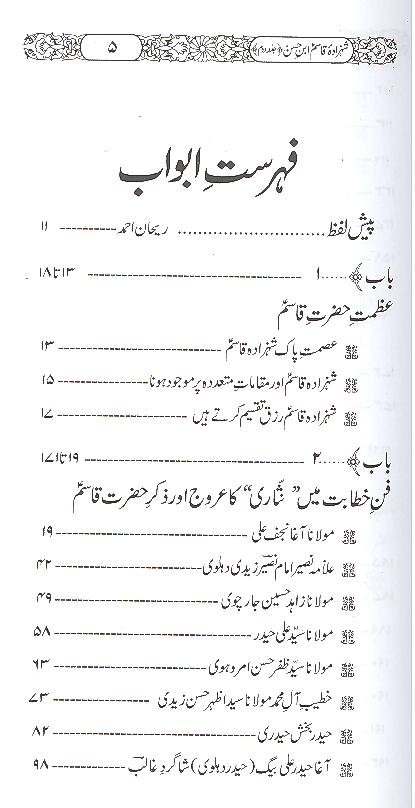 شہزادہ قاسمؑ ابنِ حسنؑ ﴿جلد دوم﴾ ۵
فہرستِ ابواب
پیش لفظ ........................... ریحان احمد ---------- ۱۱
باب ...... ۱ ---------- ۱۳ تا ۱۸
عظمتِ حضرتِ قاسمؑ
عصمتِ پاک شہزادہ قاسمؑ ---------- ۱۳
شہزادہ قاسمؑ اور مقاماتِ متعددہ پر موجود ہونا ---------- ۱۵
شہزادہ قاسمؑ رزق تقسیم کرتے ہیں ---------- ۱۷
باب ...... ۲ ---------- ۱۹ تا ۱۷۱
فنِ خطابت میں ”نثّاری“ کا عروج اور ذکرِ حضرت قاسمؑ
مولانا آغا نجف علی ---------- ۱۹
علّامہ نصیر امام نصیرؔ زیدی دہلوی ---------- ۴۲
مولانا زاہد حسین جارچوی ---------- ۴۹
مولانا سیّد علی حیدر ---------- ۵۸
مولانا سیّد ظفر حسن امروہوی ---------- ۶۳
خطیب آلِ محمدؐ مولانا سید اظہر حسن زیدی ---------- ۷۳
حیدر بخش حیدری ---------- ۸۲
آغا حیدر علی بیگ (حیدر دہلوی) شاگردِ غالبؔ ---------- ۹۸